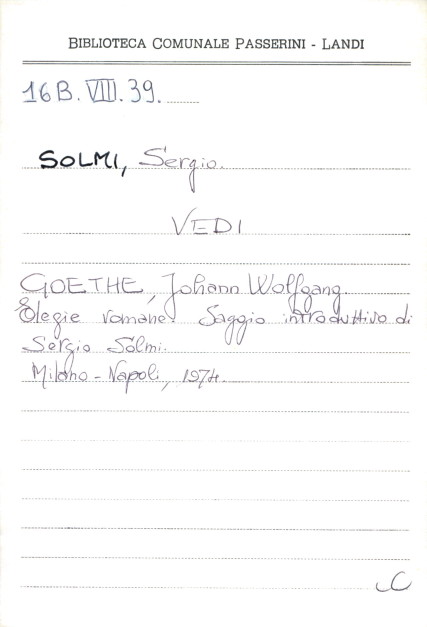 BIBLIOTECA COMUNALE PASSERINI - LANDI
16 B. VIII. 39.
SOLMI, Sergio.
VEDI
GOETHE, Johann Wolfgang
Elegie romane. Saggio introduttivo di
Sergio Solmi.
Milano - Napoli, 1974.